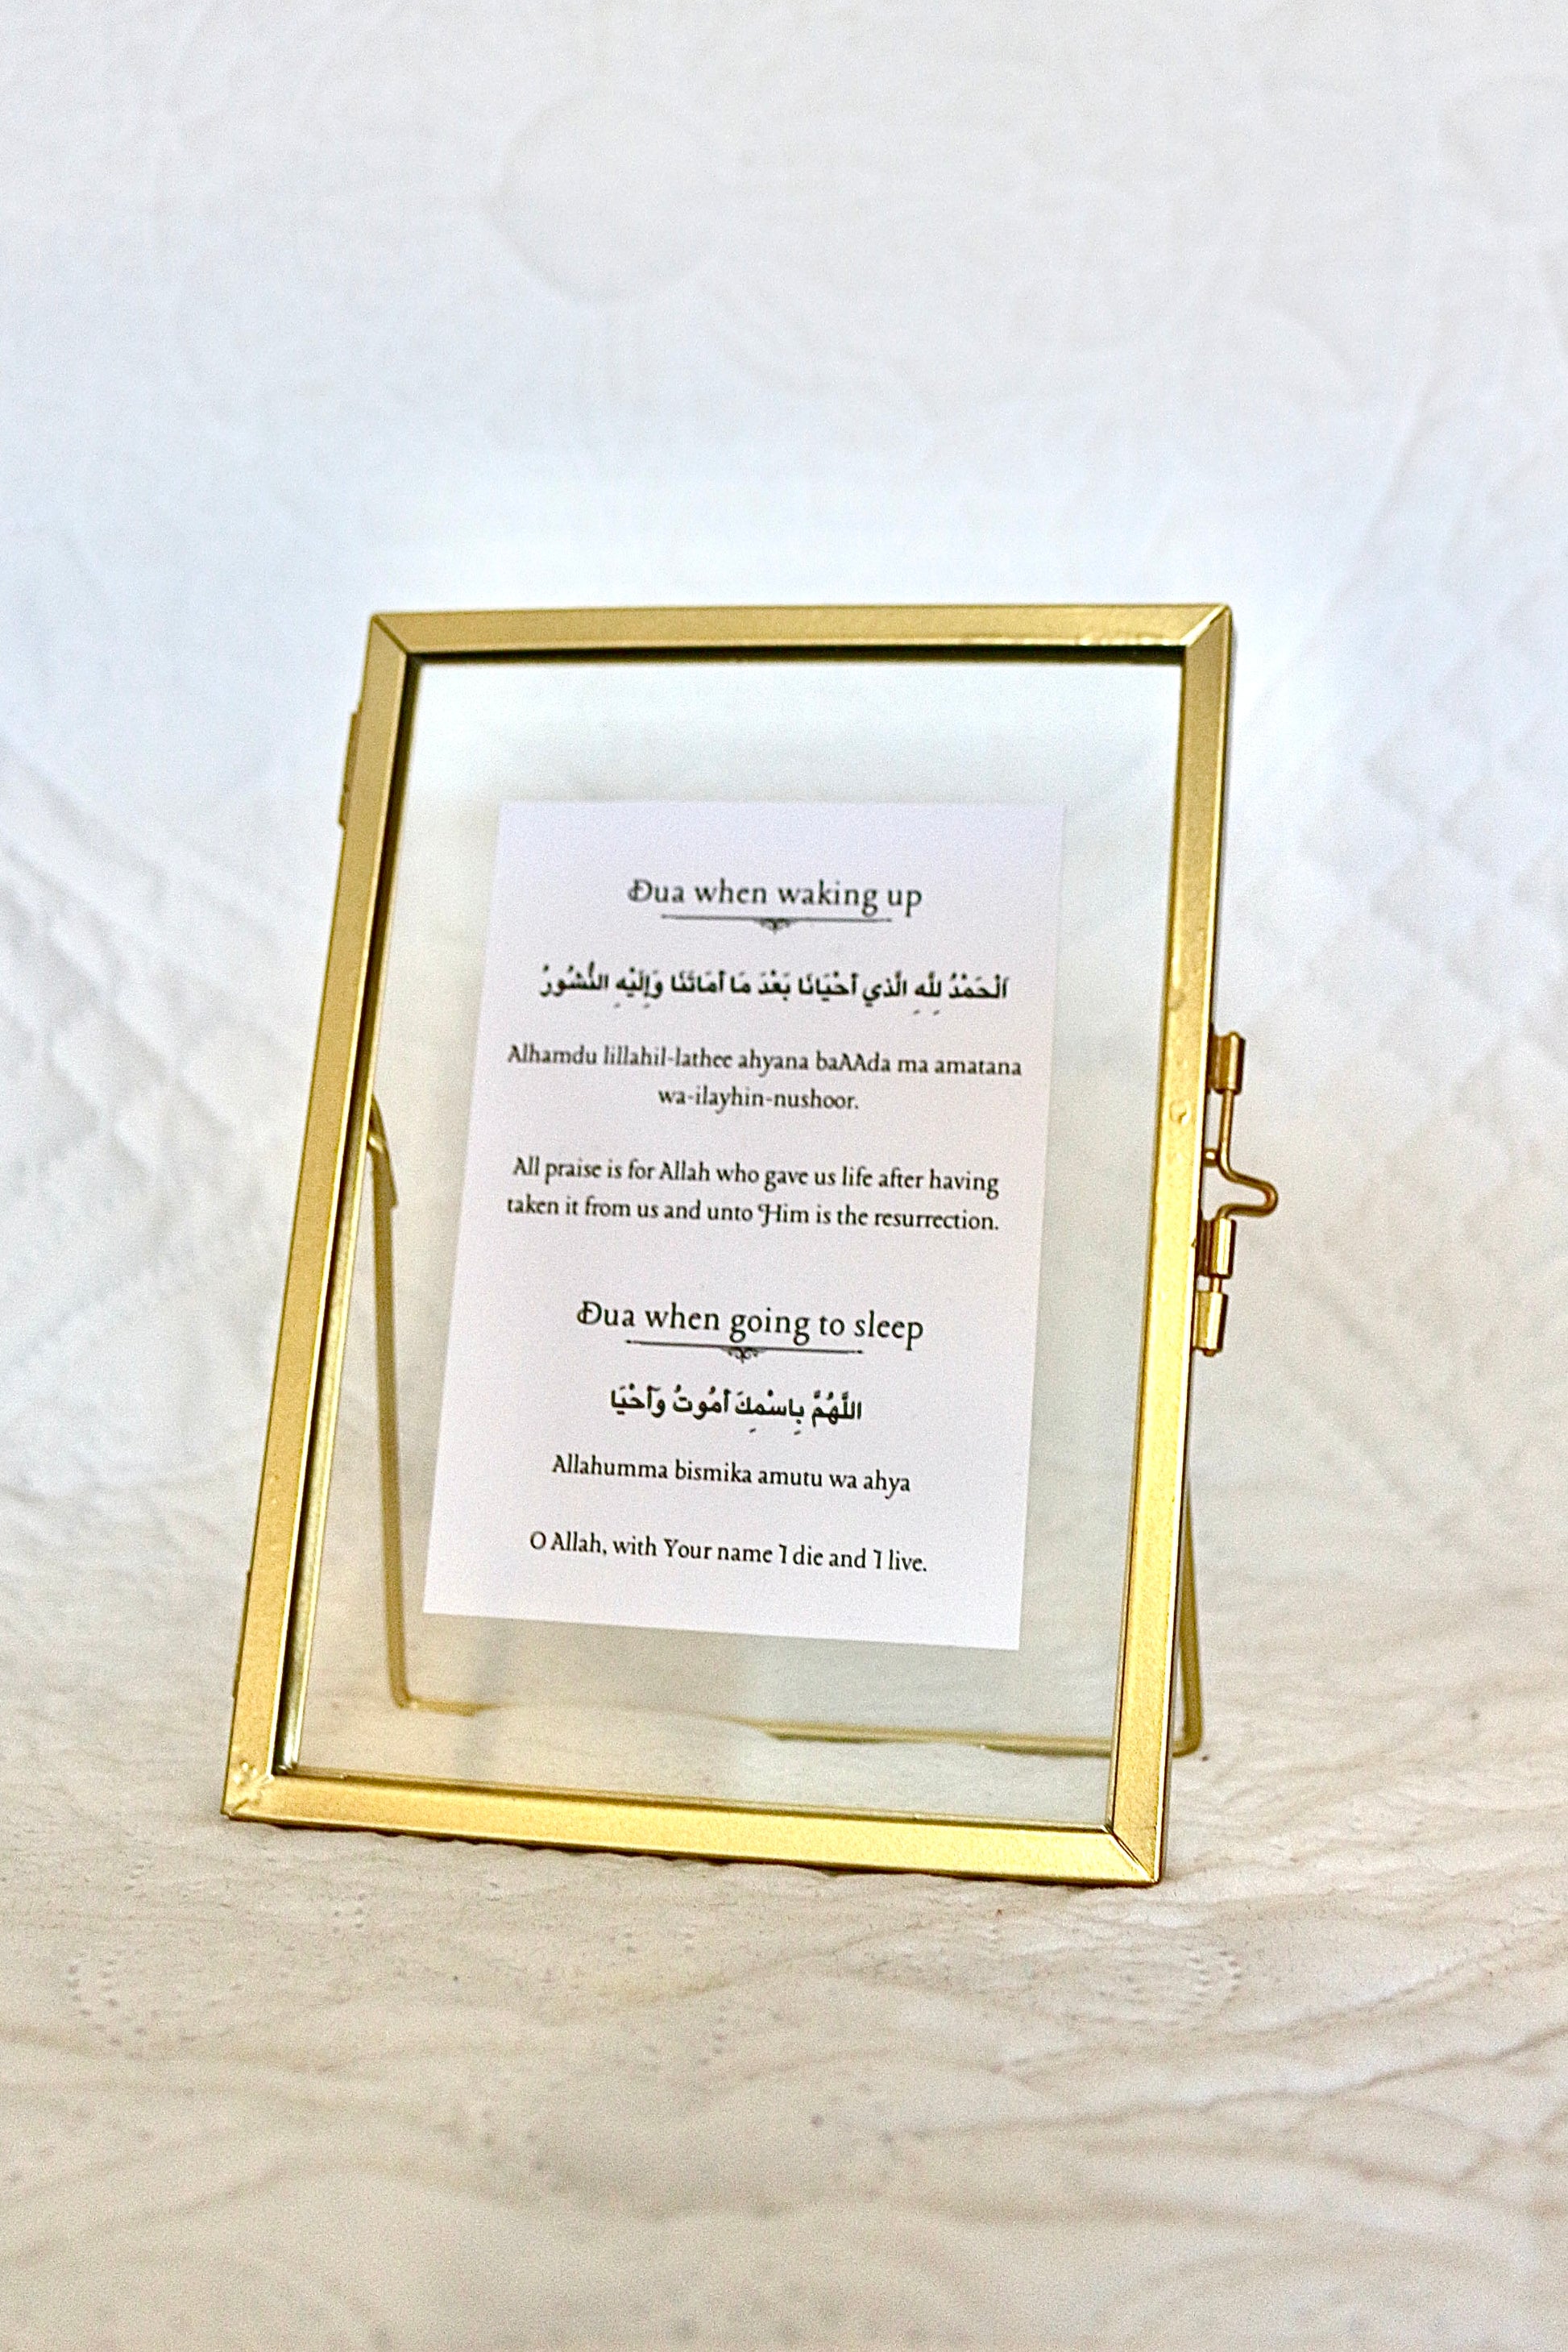 Dua when waking up
اَلْحَمْدُ لِلَّهِ الَّذِي أَحْيَانَا بَعْدَ مَا أَمَاتَنَا وَإِلَيْهِ النُّشُورُ
Alhamdu lillahil-lathee ahyana baAAda ma amatana
wa-ilayhin-nushoor.
All praise is for Allah who gave us life after having
taken it from us and unto Him is the resurrection.
Dua when going to sleep
اللَّهُمَّ بِاسْمِكَ أَمُوتُ وَأَحْيَا
Allahumma bismika amutu wa ahya
O Allah, with Your name I die and I live.